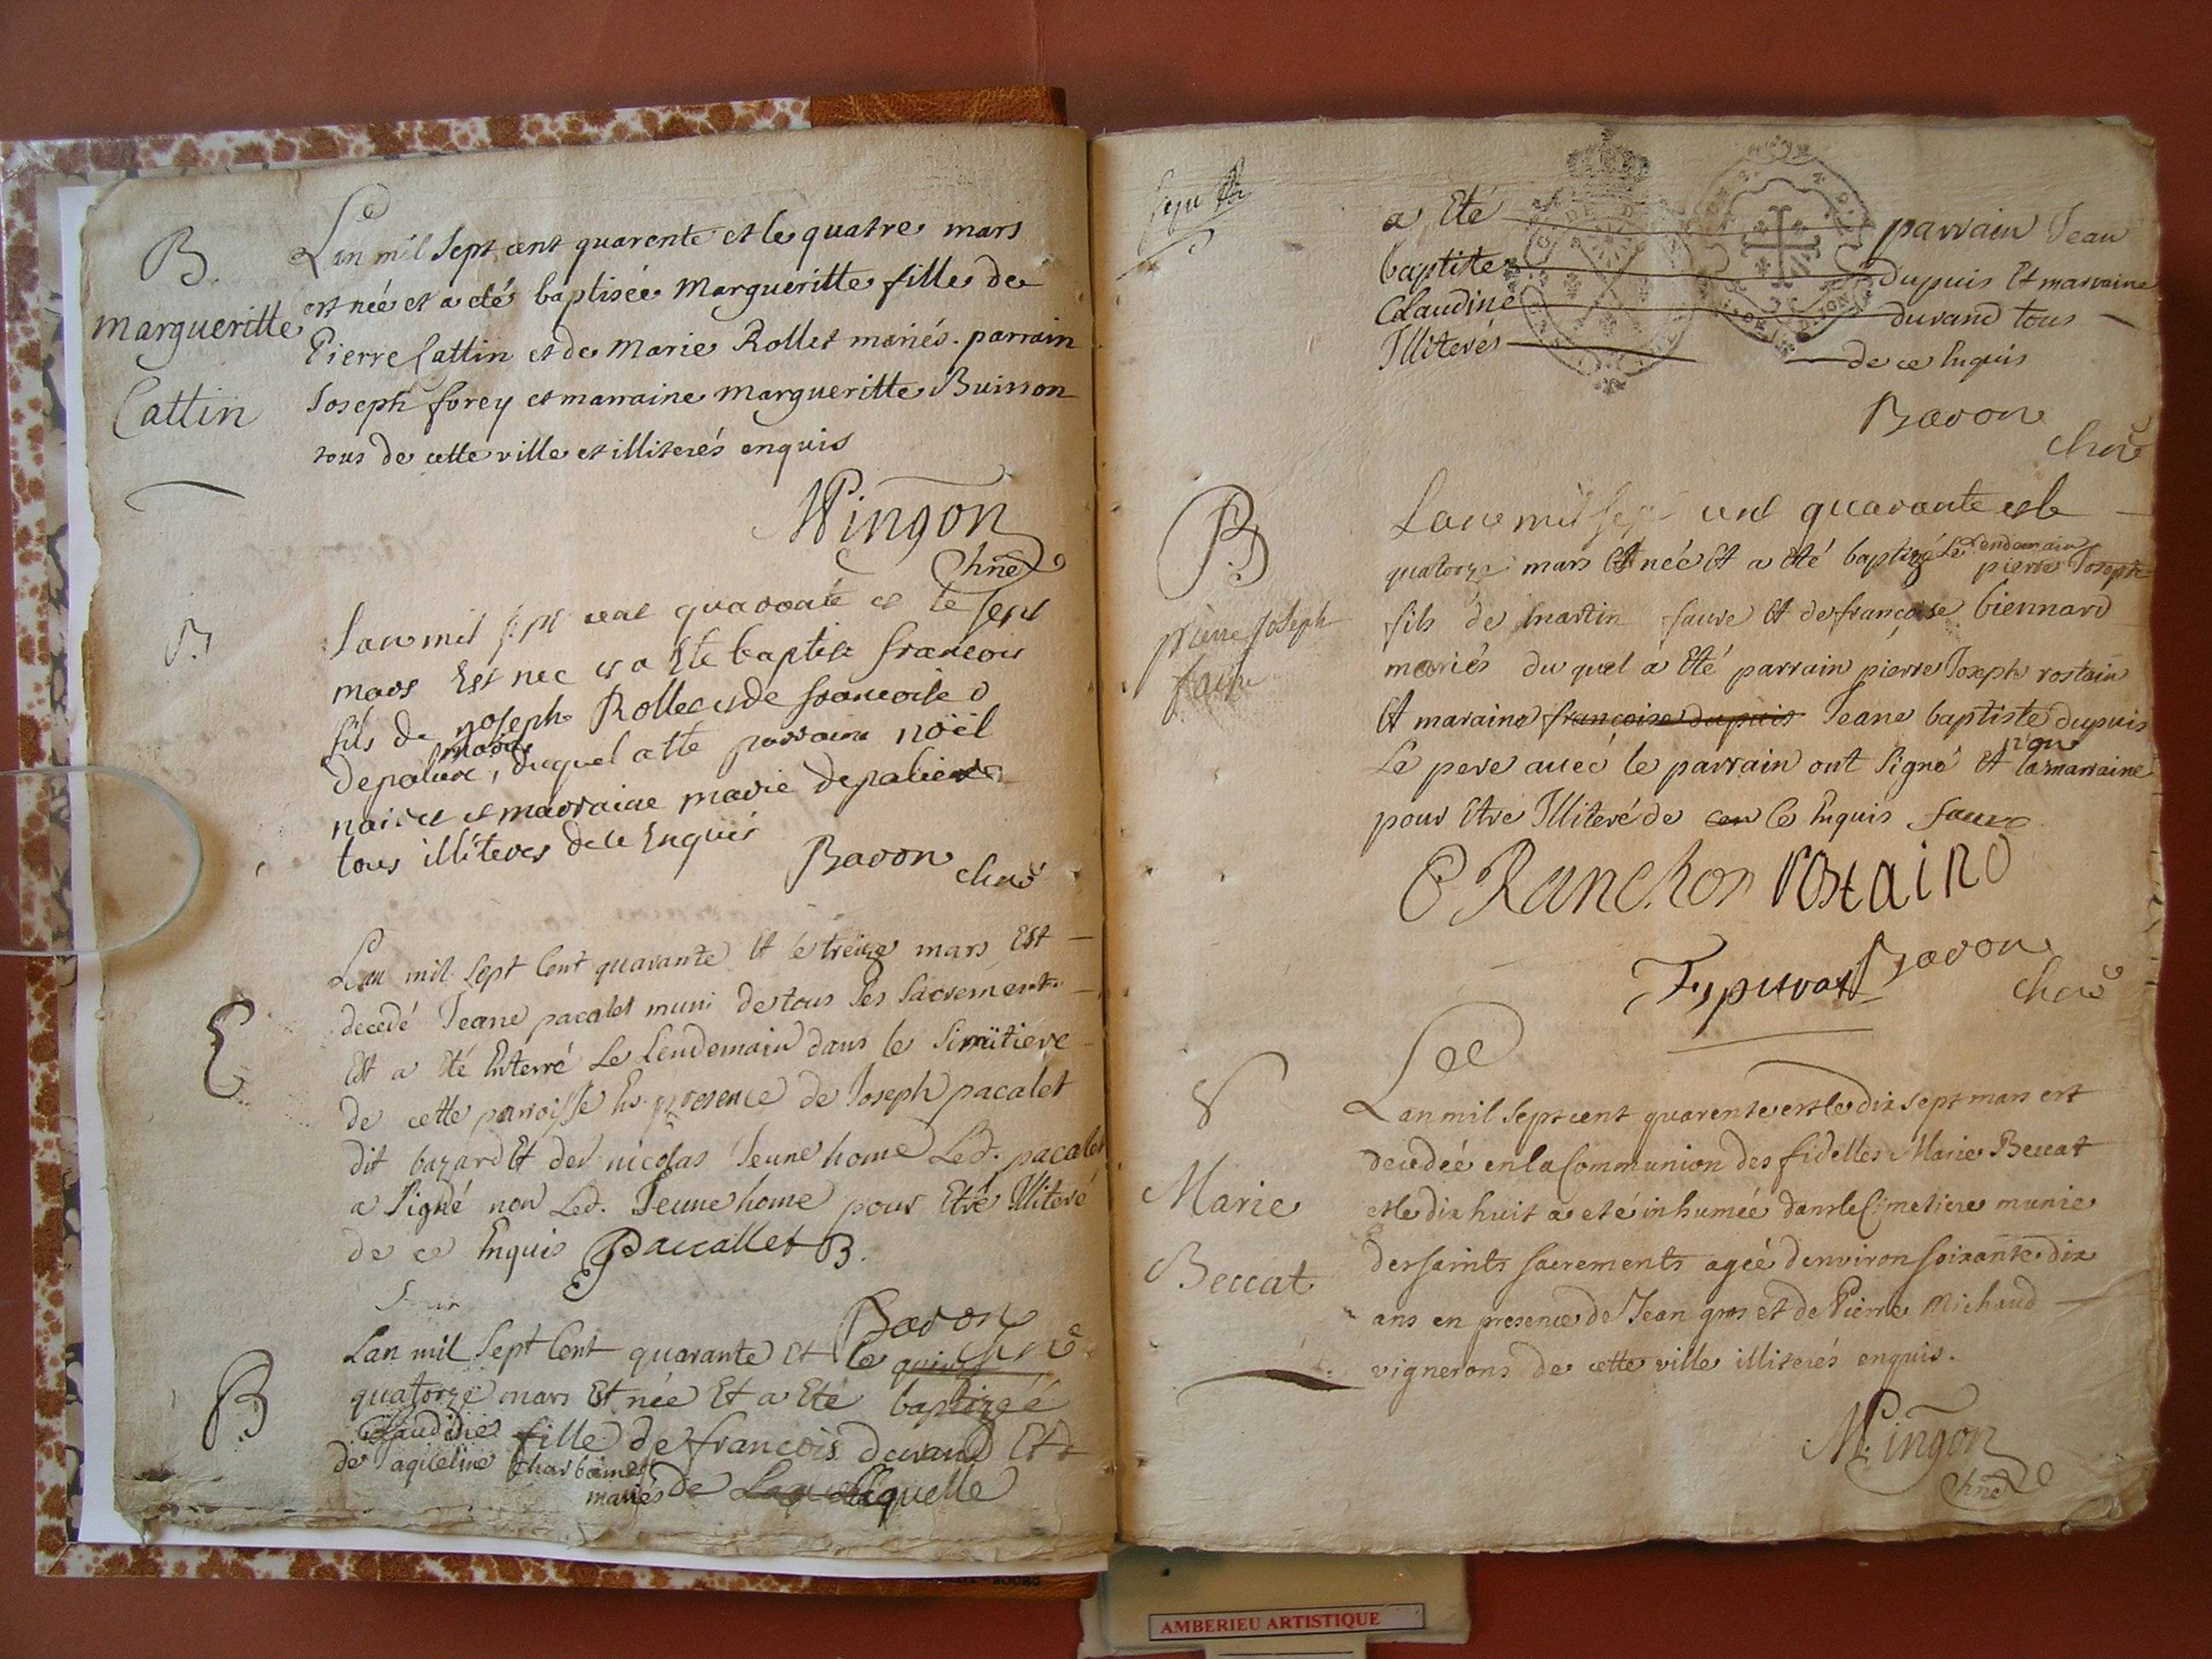 B.
Margueritte
Cattin
Lan mil Sept cent quarente et le quatre mars
est née et a eté baptisée Margueritte fille de
Pierre Cattin et de Marie Rollet mariés. parrain
Joseph forey et marraine Margueritte Buisson
tous de cette ville et illiterés enquis
Mingon
Chne
B.
Lan mil sept cent quarante et le sept
mars Est nee et a Ete baptise francois
fils de joseph Rollet et de francoise
mariés
depaliere, duquel a ete parrain noël
et marraine marie depaliere
tous illiteres de ce Enquis
Baron chne
E
Lan mil Sept Cent quarante Et le treize mars Est
decedé Jeane pacalet muni de tous ses Sacrements
Est a Eté Enterré Le Lendemain dans le Simitiere
de cette parroisse En presence de Joseph pacalet
dit bazard Et de nicolas Jeune home Led. pacalet
a Signé non Led. Jeune home pour Etre Illiteré
de ce Enquis Paccallet
Baron
chne
B
Lan mil Sept Cent quarante Et le
quatorze mars Et née Et a Eté baptizée
Claudine fille de francois durand Et
de mariés de Laquelle
a Eté parrain Jean
baptiste dupuis Et marraine
Claudine durand tous
Illiterés de ce Enquis
Baron
chne
B
pierre Joseph
faure
Lan mil sept cent quarante et le
quatorze mars Et née Et a Eté baptizé Le Lendemain
pierre Joseph
fils de martin faure Et de francoise biennard
mariés du quel a Eté parrain pierre Joseph rostain
Et maraine francoise dupuis Jeane baptiste dupuis
Le pere avec le parrain ont Signé Et non la marraine
pour Etre Illiteré de ce Enquis faure
Ranchon rostaind
Baron
chne
Marie
Beccat
Lan mil Sept cent quarente et le dix sept mars est
decedée en la Communion des fidelles Marie Beccat
et le dix huit a eté inhumée dans le Cimetiere munie
des saints sacrements agée denviron soixante dix
ans en presence de Jean gros et de Pierre Michaud
vignerons de cette ville illiterés enquis.
Mingon
Chne
AMBERIEU ARTISTIQUE